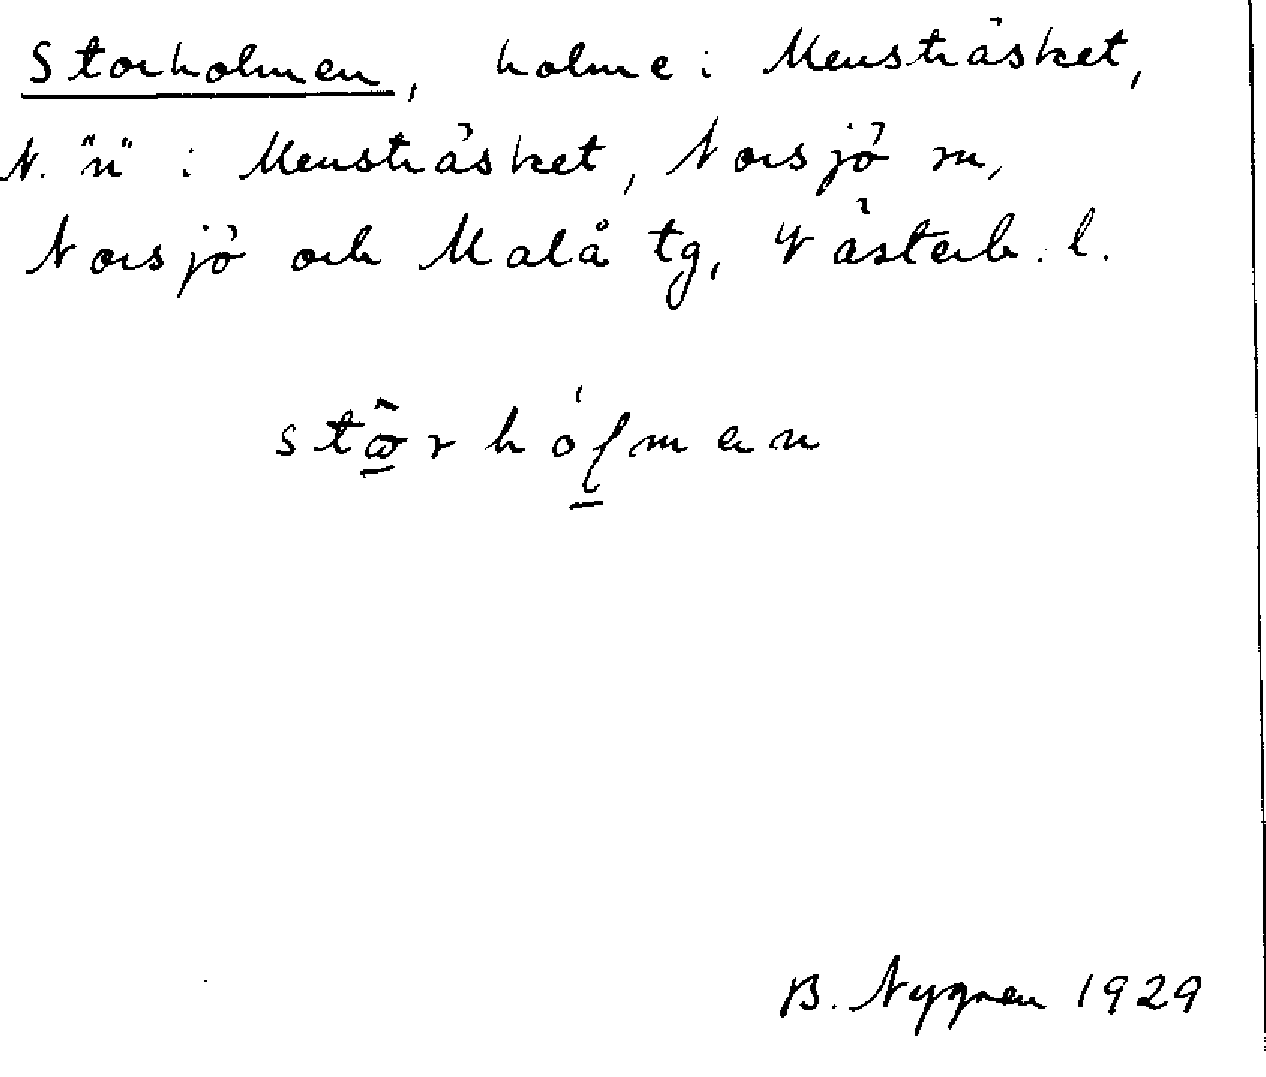 Storholmen, holme i Mensträsket,
N. "n" i Mensträsket, Norsjö sn,
Norsjö och Malå tg, Västerb. l.
B. Nygren 1929